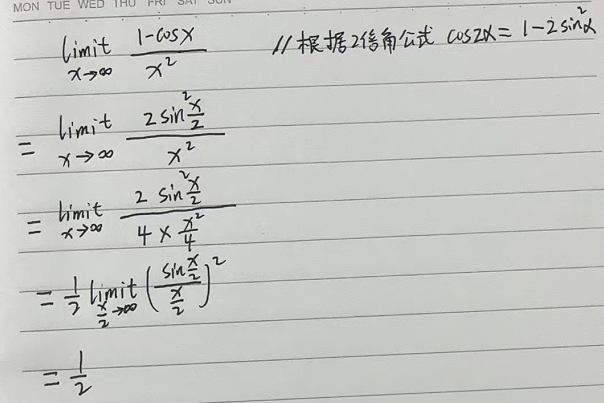 MON TUE WED THU FRI SAT SUN
limit x→∞ (1-cosx)/x² //根据2倍角公式 cos2α=1-2sin²α
= limit x→∞ (2sin²(x/2))/x²
= limit x→∞ (2 sin²(x/2))/(4×(x²/4))
= 1/2 limit x/2→∞ ((sin(x/2))/(x/2))²
= 1/2